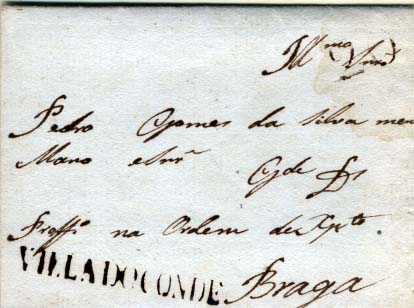 Illmo Snr
Pedro Gomes da Silva meu
Mano e Snr
Gde Ds
Proffo na Ordem de Xpto
VILLA DO CONDE Braga